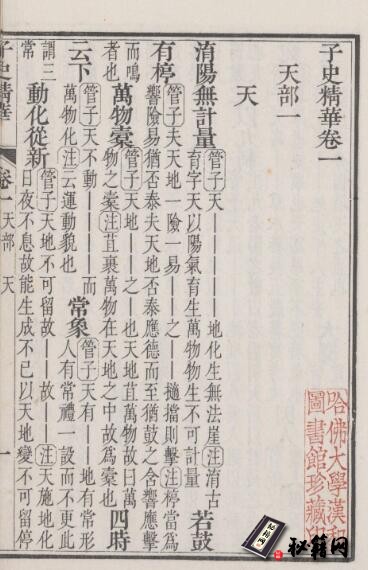 子史精華卷一
天部一
天
淯陽無計量 管子天————地化生無法崖注淯古
育字天以陽氣育生萬物物生不可計量 若鼓
有桴 管子夫天地一險一易——之——擿擋則擊注桴當爲
響險易猶否泰夫天地否泰應德而至猶鼓之含響應擊
而鳴
者也 萬物橐 管子天地——之—也天地苴萬物故曰萬
物之橐注苴裹萬物在天地之中故爲橐也 四時
云下 管子天不動————而
萬物化注云運動貌也 常象 管子天有——地有常形
人有常禮一設而不更此
謂三
常 動化從新 管子天地不可留故——故——注天施地化
日夜不息故能生成不已以天地變不可留停
子史精華 卷一 天部 天 一
哈佛大學漢
圖書館珍藏
秘籍网